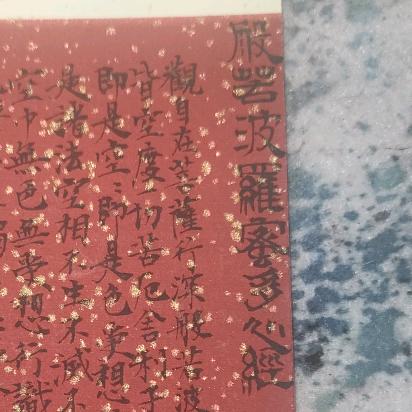 般若波羅蜜多心經
觀自在菩薩行深般若波
皆空度一切苦厄舍利子
即是空〻即是色受想
是諸法空相不生不滅不
空中無色無受想行識